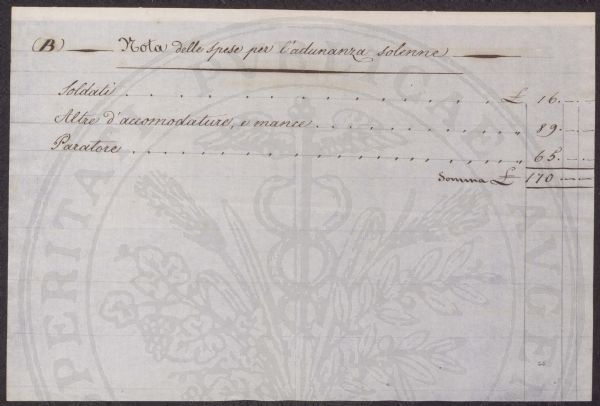 (B) — Nota delle spese per l'adunanza solenne —
Soldati . . . . . . . . . . . . . . £ 16. — —
Altre d'accomodature, e mance . . . . . . . . . " 89. — —
Paratore . . . . . . . . . . . . . . " 65. — —
Somma £ 170 — —
PERITAT